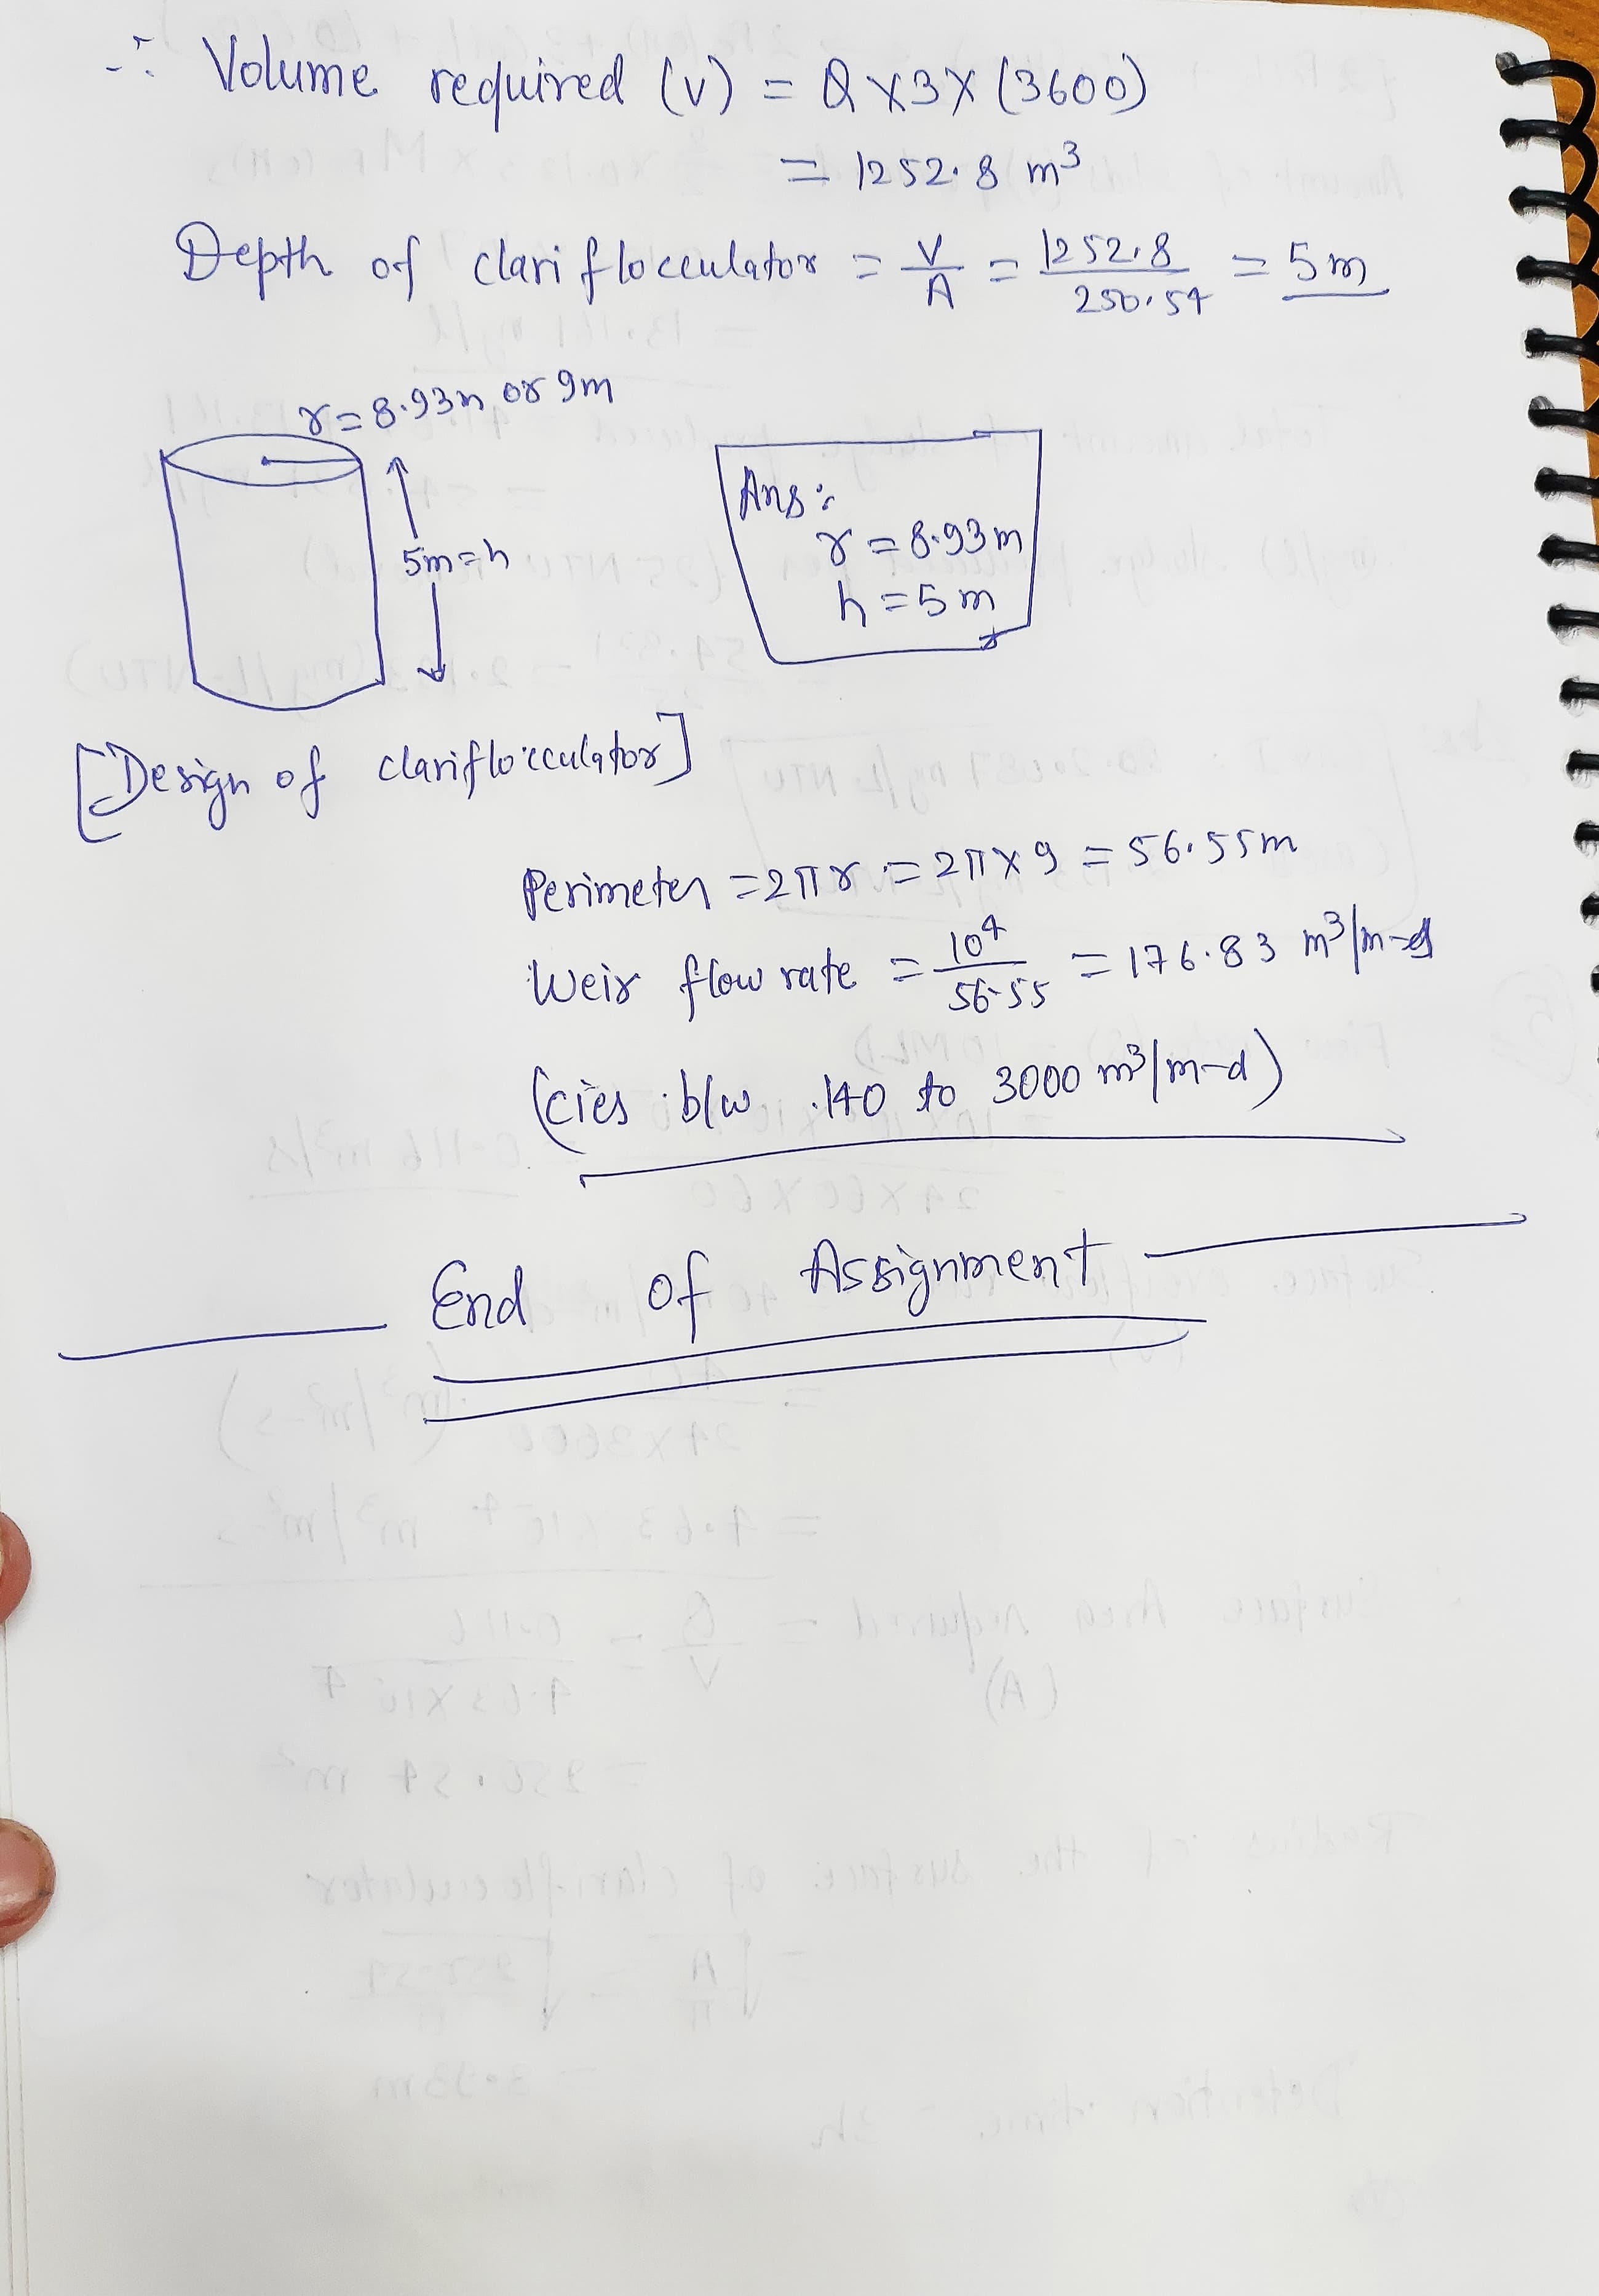 ∴ Volume required (V) = Q X3X (3600)
= 1252.8 m³
Depth of clariflocculator = V/A = 1252.8/250.54 = 5m
r=8.93m or 9m
5m=h
Ans:
r=8.93m
h=5m
[Design of clariflocculator]
Perimeter =2πr = 2πx9 = 56.55m
Weir flow rate = 10⁴/56.55 = 176.83 m³/m-d
(cies b/w 140 to 3000 m³/m-d)
End of Assignment